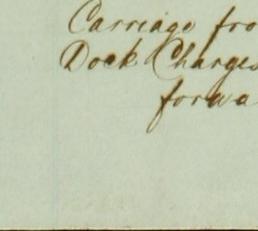 Carriage fro
Dock Charges
forwa